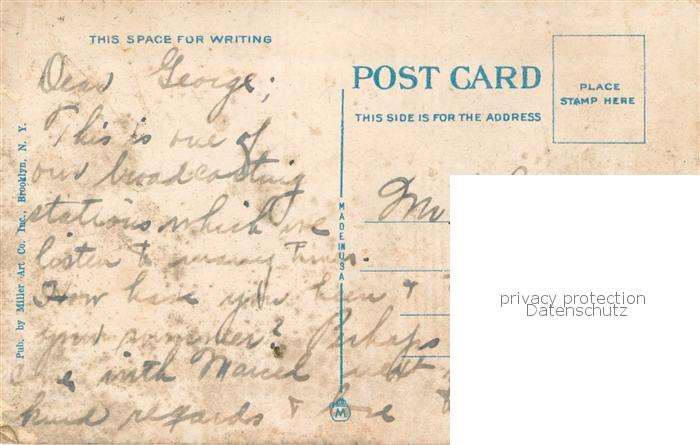 THIS SPACE FOR WRITING
Dear George;
This is one of
our broadcasting
stations which we
listen to many times.
How have you been &
your summer? Perhaps
with Marcel
kind regards & love
Pub. by Miller Art Co. Inc., Brooklyn, N. Y.
POST CARD
THIS SIDE IS FOR THE ADDRESS
PLACE
STAMP HERE
MADE IN USA
M
privacy protection
Datenschutz